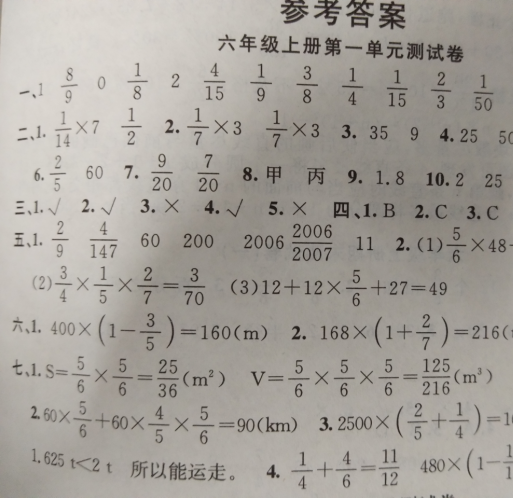 参考答案
六年级上册第一单元测试卷
一、1 8/9 0 1/8 2 4/15 1/9 3/8 1/4 1/15 2/3 1/50
二、1. 1/14×7 1/2 2. 1/7×3 1/7×3 3. 35 9 4. 25 50
6. 2/5 60 7. 9/20 7/20 8. 甲 丙 9. 1.8 10. 2 25
三、1. √ 2. √ 3. × 4. √ 5. × 四、1. B 2. C 3. C
五、1. 2/9 4/147 60 200 2006 2006/2007 11 2. (1) 5/6×48-
(2) 3/4×1/5×2/7=3/70 (3)12+12×5/6+27=49
六、1. 400×(1-3/5)=160(m) 2. 168×(1+2/7)=216(
七、1. S=5/6×5/6=25/36(m²) V=5/6×5/6×5/6=125/216(m³)
2. 60×5/6+60×4/5×5/6=90(km) 3. 2500×(2/5+1/4)=
1.625 t<2 t 所以能运走。 4. 1/4+4/6=11/12 480×(1-